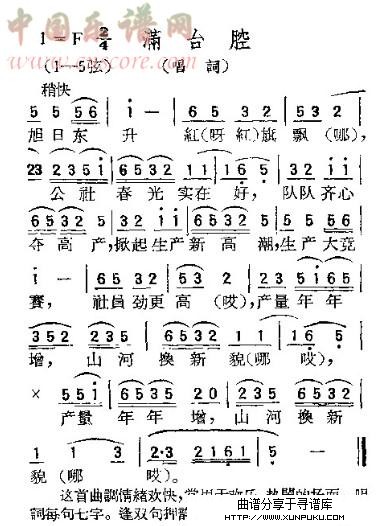 中国乐谱网
1=F 2/4 滿台腔
(1—5弦) (唱詞)
稍快
5 5 56 | i — | 6 5 3 2 | 5 32 |
旭日东 升 紅(呀紅)旗飘(哪),
23 235i | 6532 | 1 1 | 16 5 | 32 i i |
公社春光实在好,队队齐心
6532 5 | 32 i i | 65 35 | 2 | 5 5 56 |
夺高产,掀起生产新高潮,生产大竞
i — | 65 32 | 53 2 | 23 5i65 |
賽, 社員劲更高(哎),产量年年
352 235 | 2351 6532 | 1 1 | 16 5 |
增,山河換新貌(哪哎),
× 5 5 i | 6535 6532 | 20 235 | 6535 2352 |
产量年年增,山河換新
1 1 3 | 2·3 2161 | 5 — |
貌(哪哎)。
这首曲調情緒欢快,
詞每句七字。逢双句押韵
曲谱分享于寻谱库
WWW.XUNPUKU.COM